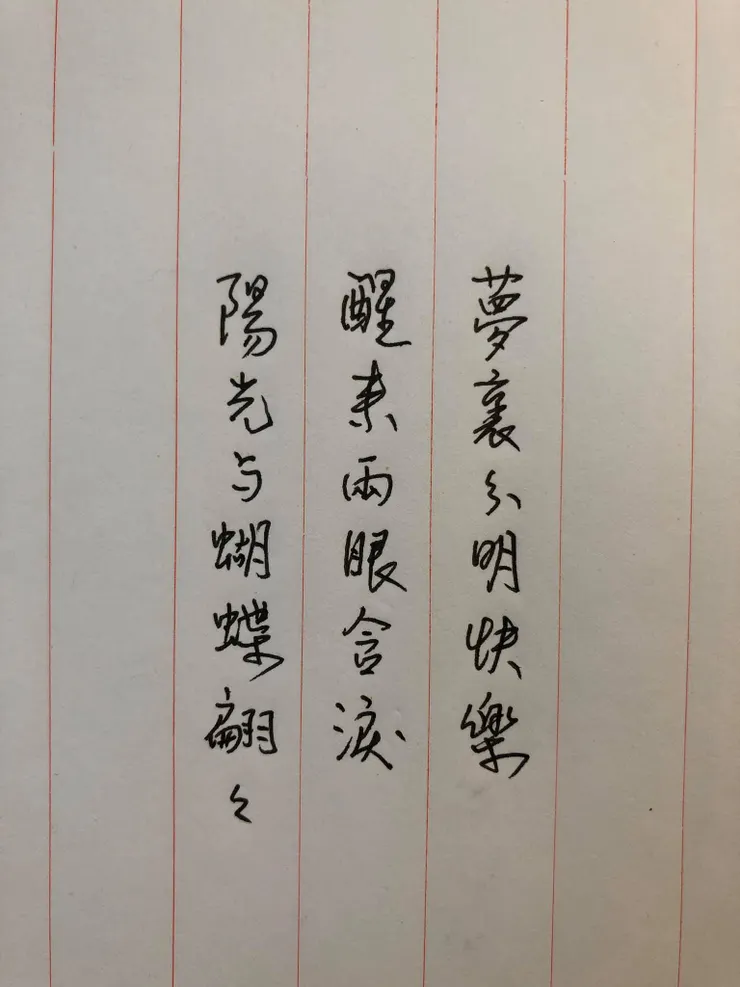 夢裏分明快樂
醒来兩眼含淚
陽光与蝴蝶翩々